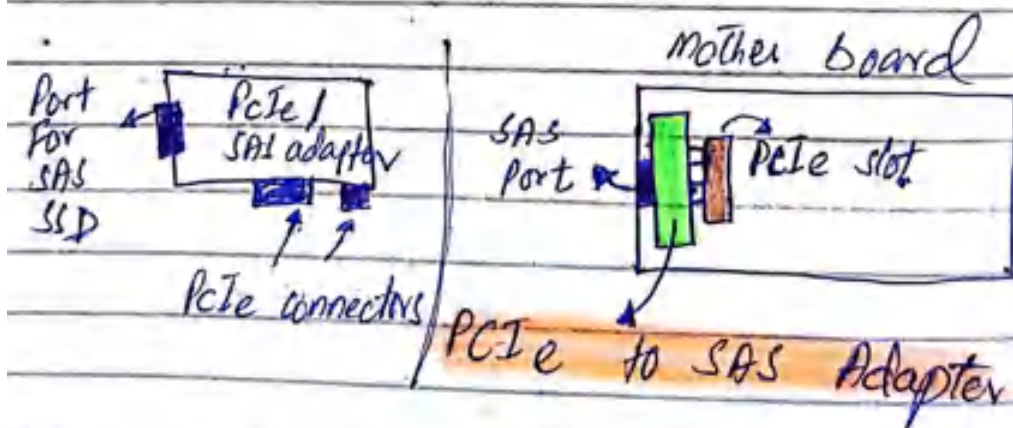 Port
For
SAS
SSD
PCIe /
SAS adapter
PCIe connectors
Mother board
SAS
Port
PCIe slot
PCIe to SAS Adapter